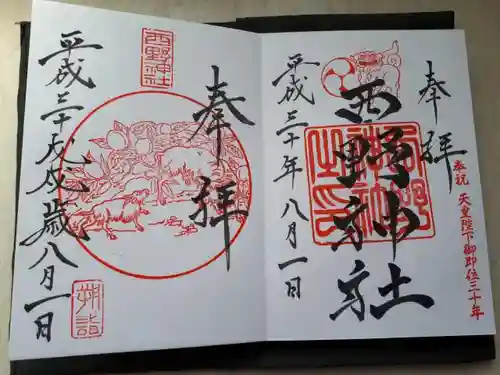 奉拝
西野神社
平成三十戊戌歳八月一日
朔詣
奉拝
西野神社
平成三十年八月一日
奉祝 天皇陛下御即位三十年